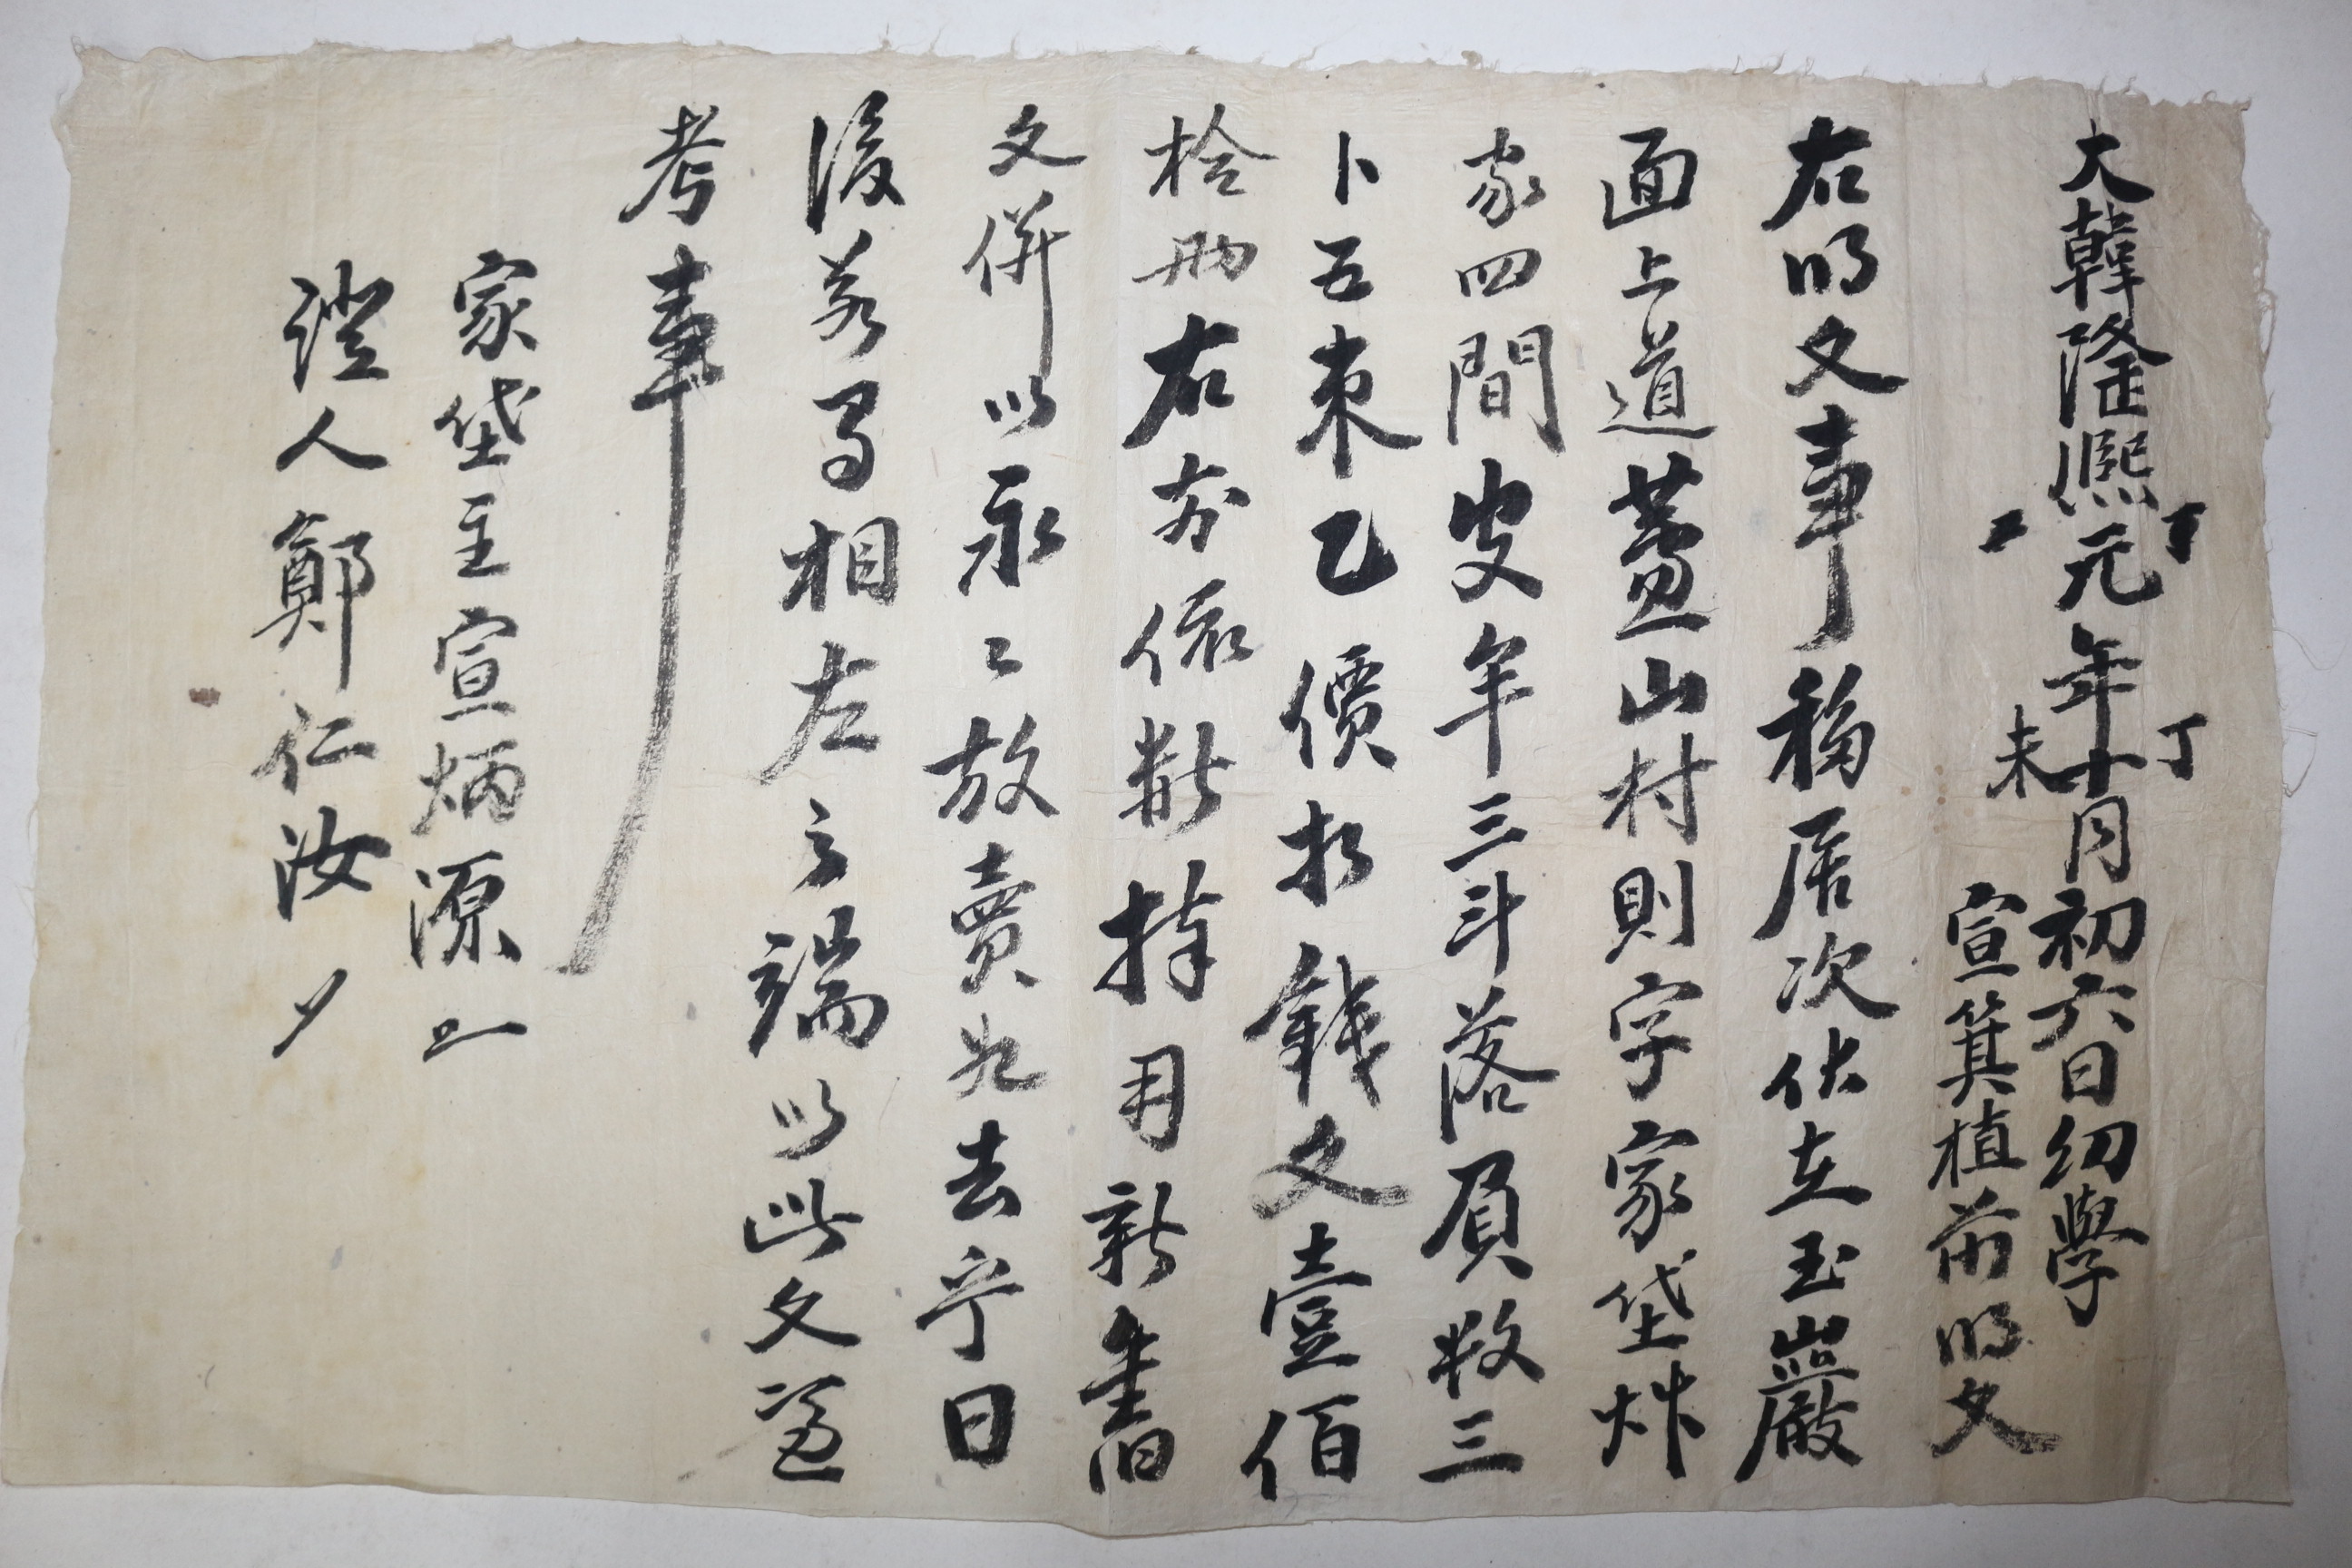 大韓隆熙元年丁未十月初六日幼學
宣箕植前明文
右明文事移居次伏在玉巖
面上道蓋山村則字家垈
家四間皮牟三斗落負數三
卜五束乙價折錢文壹佰
拾兩右前依數捧用新舊
文倂以永〻放賣爲去乎日
後若有相左之端以此文憑
考事
家垈主宣炳源
證人鄭仁汝